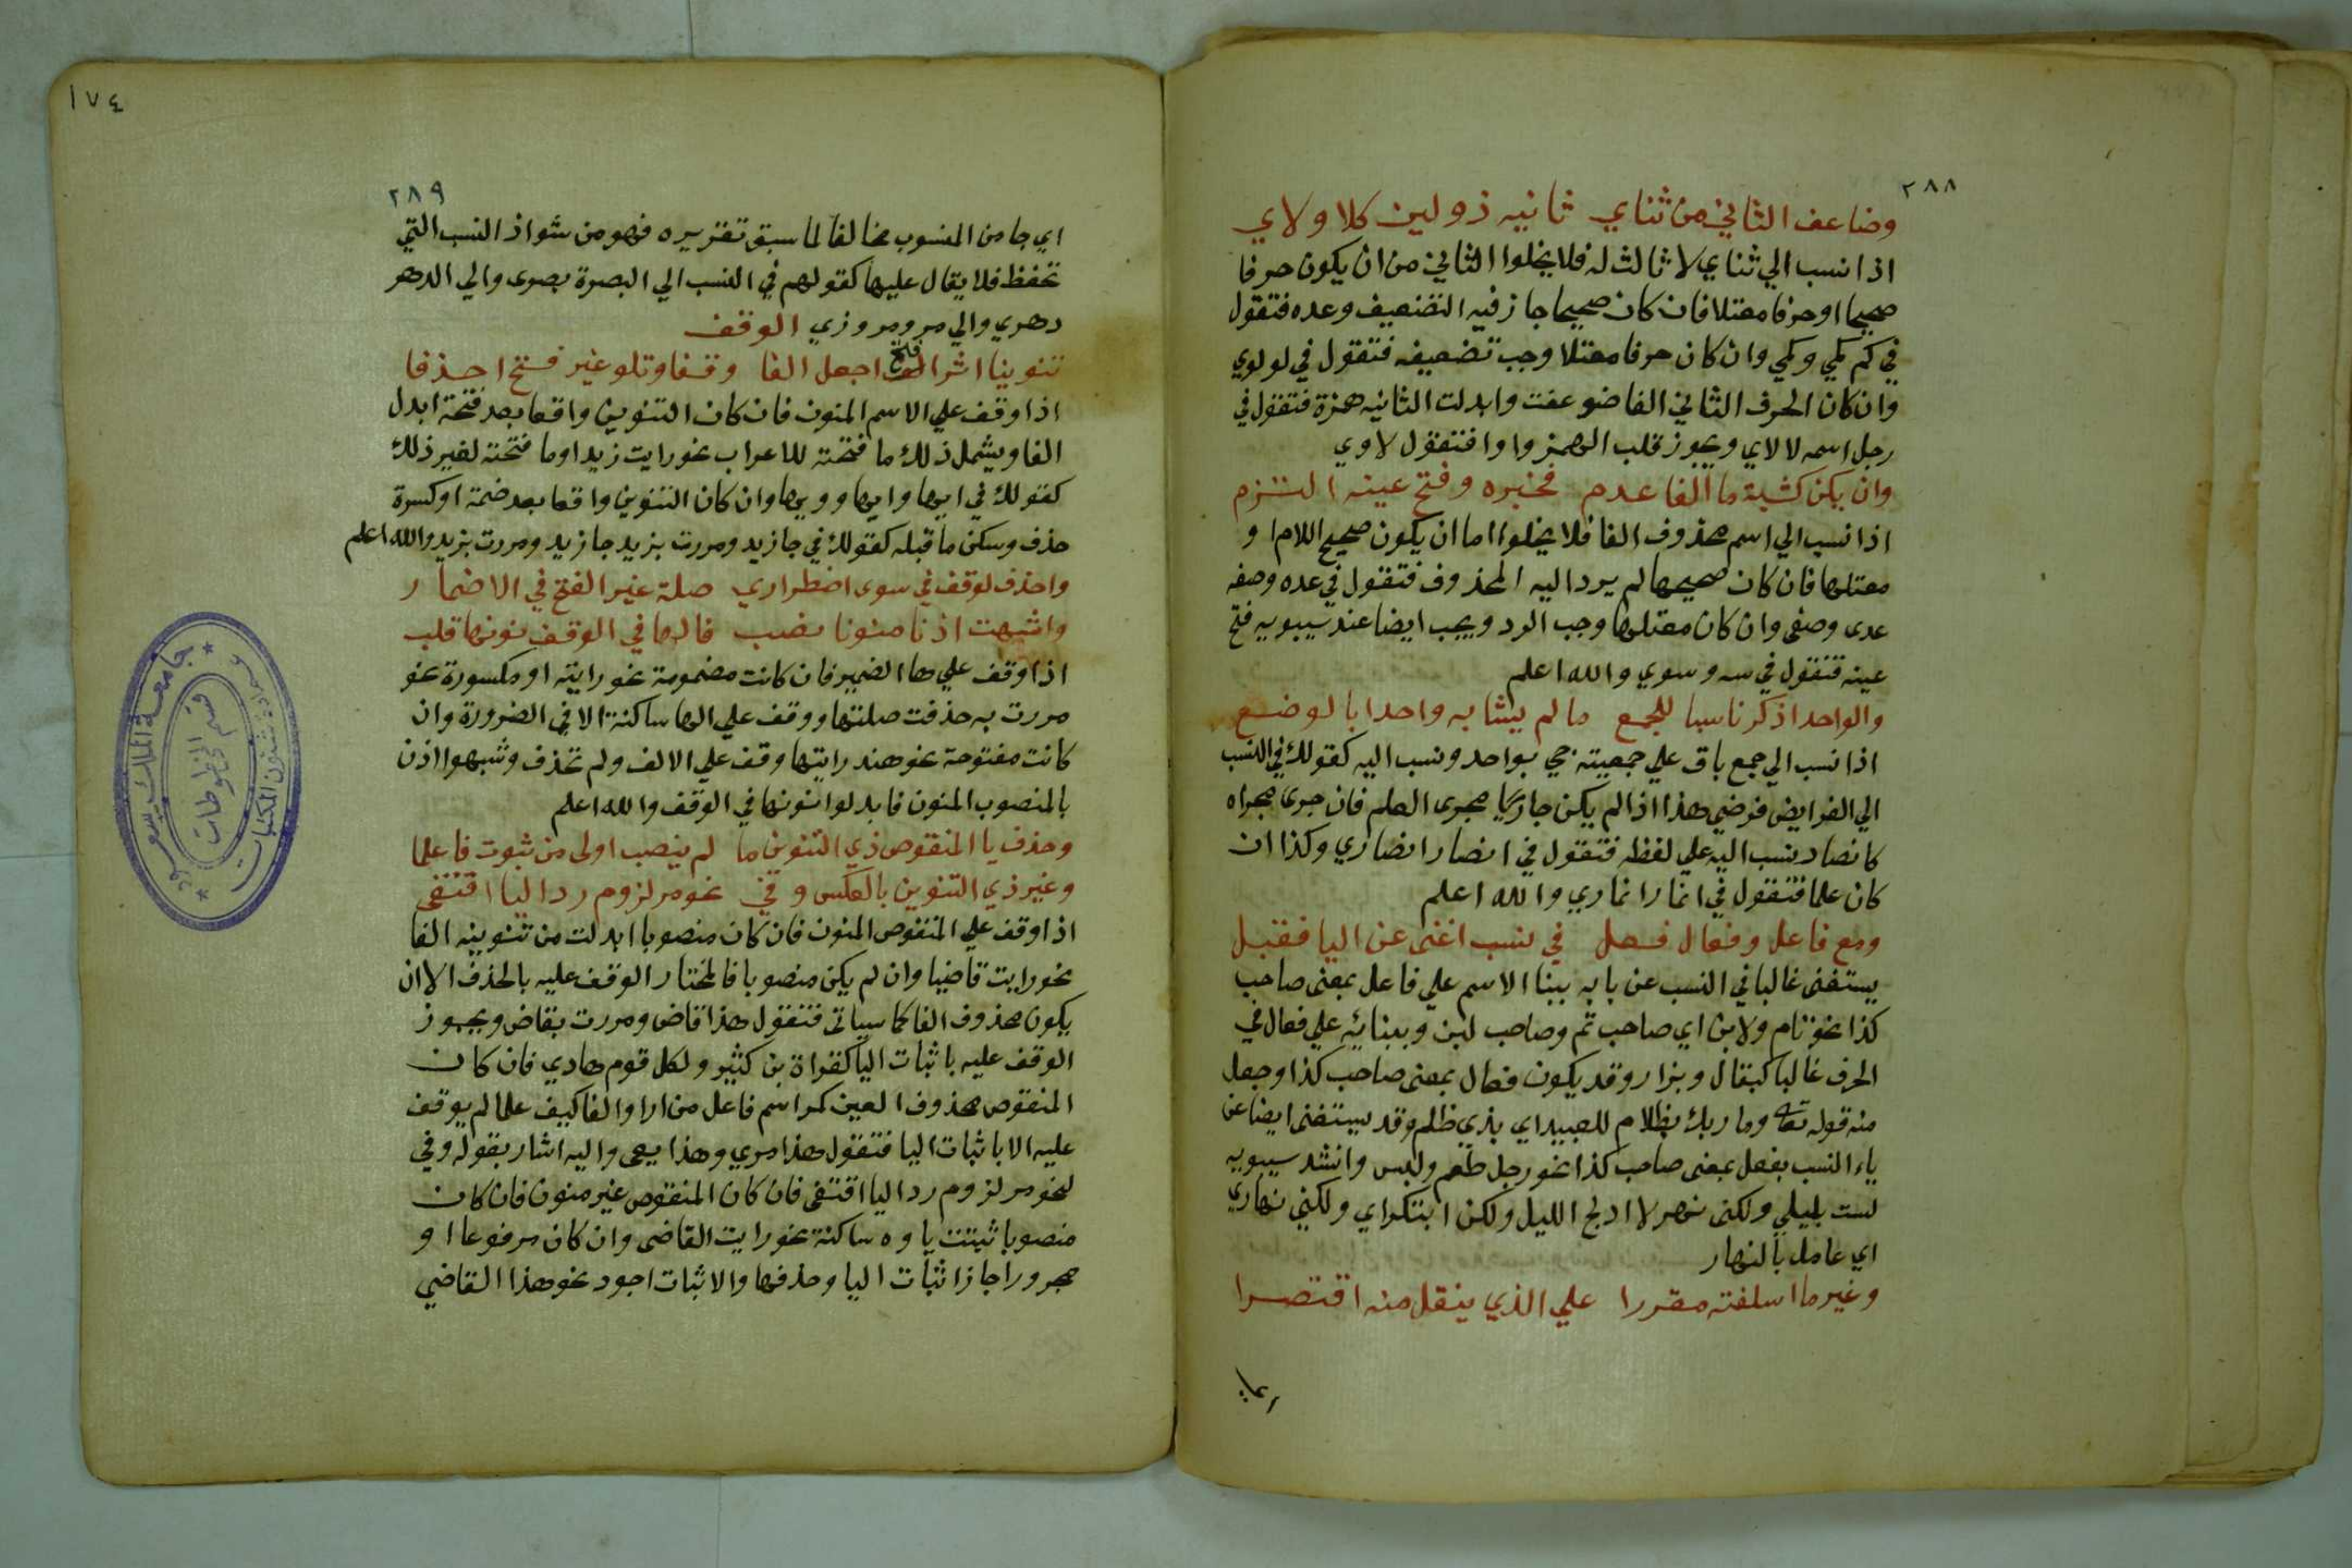 ٢٨٨
وضاعف الثاني من ثناي ثانيه ذو لين كلا ولاي
اذا نسب الي ثناي لا ثالث له فلا يخلوا الثاني من ان يكون حرفا
صحيحا او حرفا معتلا فان كان صحيحا جاز فيه التضعيف وعده فتقول
في كم كمي وكمي وان كان حرفا معتلا وجب تضعيفه فتقول في لو لوي
وان كان الحرف الثاني الفا ضوعفت وابدلت الثانيه همزة فتقول في
رجل اسمه لا لاي ويجوز قلب الهمز واوا فتقول لاوي
وان يكن كشية ما الفا عدم فجبره وفتح عينه التزم
اذا نسب الي اسم محذوف الفا فلا يخلوا اما ان يكون صحيح اللام او
معتلها فان كان صحيحها لم يرد اليه المحذوف فتقول في عده وصفه
عدى وصفى وان كان معتلها وجب الرد ويجب ايضا عند سيبويه فتح
عينه فتقول في سه وسوي والله اعلم
والواحد اذكر ناسبا للجمع ما لم يشابه واحدا بالوضع
اذا نسب الي جمع باق علي جمعيته جي بواحد ونسب اليه كقولك في النسب
الي الفرايض فرضي هذا اذا لم يكن جاريا مجرى العلم فان جرى مجراه
كانصار ينسب اليه علي لفظه فتقول في انصار انصاري وكذا ان
كان علما فتقول في انمار انماري والله اعلم
ومع فاعل وفعال فعل في نسب اغنى عن اليا فقبل
يستغنى غالبا في النسب عن يا به ببنا الاسم علي فاعل بمعنى صاحب
كذا نحو تام ولابن اي صاحب تم وصاحب لبن وببنائه علي فعال في
الحرف غالبا كبقال وبزار وقد يكون فعال بمعنى صاحب كذا وجعل
منه قوله تعالى وما ربك بظلام للعبيد اي بذي ظلم وقد يستغنى ايضا عن
ياء النسب بفعل بمعنى صاحب كذا نحو رجل طعم ولبس وانشد سيبويه
لست بليلي ولكنى نهر لا ادلج الليل ولكن ابتكر اي ولكني نهاري
اي عامل بالنهار
وغير ما اسلفته مقررا علي الذي ينقل منه اقتصرا
١٧٤
٢٨٩
اي جا من المنسوب مخالفا لما سبق تقريره فهو من شواذ النسب التي
تحفظ فلا يقال عليها كقولهم في النسب الي البصرة بصرى والي الدهر
دهري والي مرو مروزي الوقف
تنوينا اثر فتح اجعل الفا وقفا وتلو غير فتح احذفا
اذا وقف علي الاسم المنون فان كان التنوين واقعا بعد فتحة ابدل
الفا ويشمل ذلك ما فتحته للاعراب نحو رايت زيدا وما فتحته لغير ذلك
كقولك في ايها وايها وويها وان كان التنوين واقعا بعد ضمة او كسرة
حذف وسكن ما قبله كقولك في جا زيد ومررت بزيد جا زيد ومررت بزيد والله اعلم
واحذف لوقف في سوى اضطراري صلة غير الفتح في الاضمار
واشبهت اذنا منونا نصب فالها في الوقف نونها قلب
اذا وقف علي ها الضمير فان كانت مضمومة نحو رايته او مكسورة نحو
مررت به حذفت صلتها ووقف علي الها ساكنة الا في الضرورة وان
كانت مفتوحة نحو هند رايتها وقف علي الالف ولم تحذف وشبهوا اذن
بالمنصوب المنون فابدلوا نونها في الوقف والله اعلم
وحذف يا المنقوص ذي التنوين ما لم ينصب اولى من ثبوت فاعلما
وغير ذي التنوين بالعكس وفي نحو مر لزوم رد اليا اقتفى
اذا وقف علي المنقوص المنون فان كان منصوبا ابدلت من تنوينه الفا
نحو رايت قاضيا وان لم يكن منصوبا فالمختار الوقف عليه بالحذف الا ان
يكون محذوف الفا كما سياتى فتقول هذا قاض ومررت بقاض ويجوز
الوقف عليه باثبات اليا كقراة بن كثير ولكل قوم هادي فان كان
المنقوص محذوف العين كمر اسم فاعل من ارا والفا كيف علما لم يوقف
عليه الا باثبات اليا فتقول هذا مري وهذا يعى واليه اشار بقوله وفي
نحو مر لزوم رد اليا اقتفى فان كان المنقوص غير منون فان كان
منصوبا ثبتت ياوه ساكنة نحو رايت القاضى وان كان مرفوعا او
مجرورا جاز اثبات اليا وحذفها والاثبات اجود نحو هذا القاضي
جامعة الملك سعود
عمادة شئون المكتبات
قسم المخطوطات